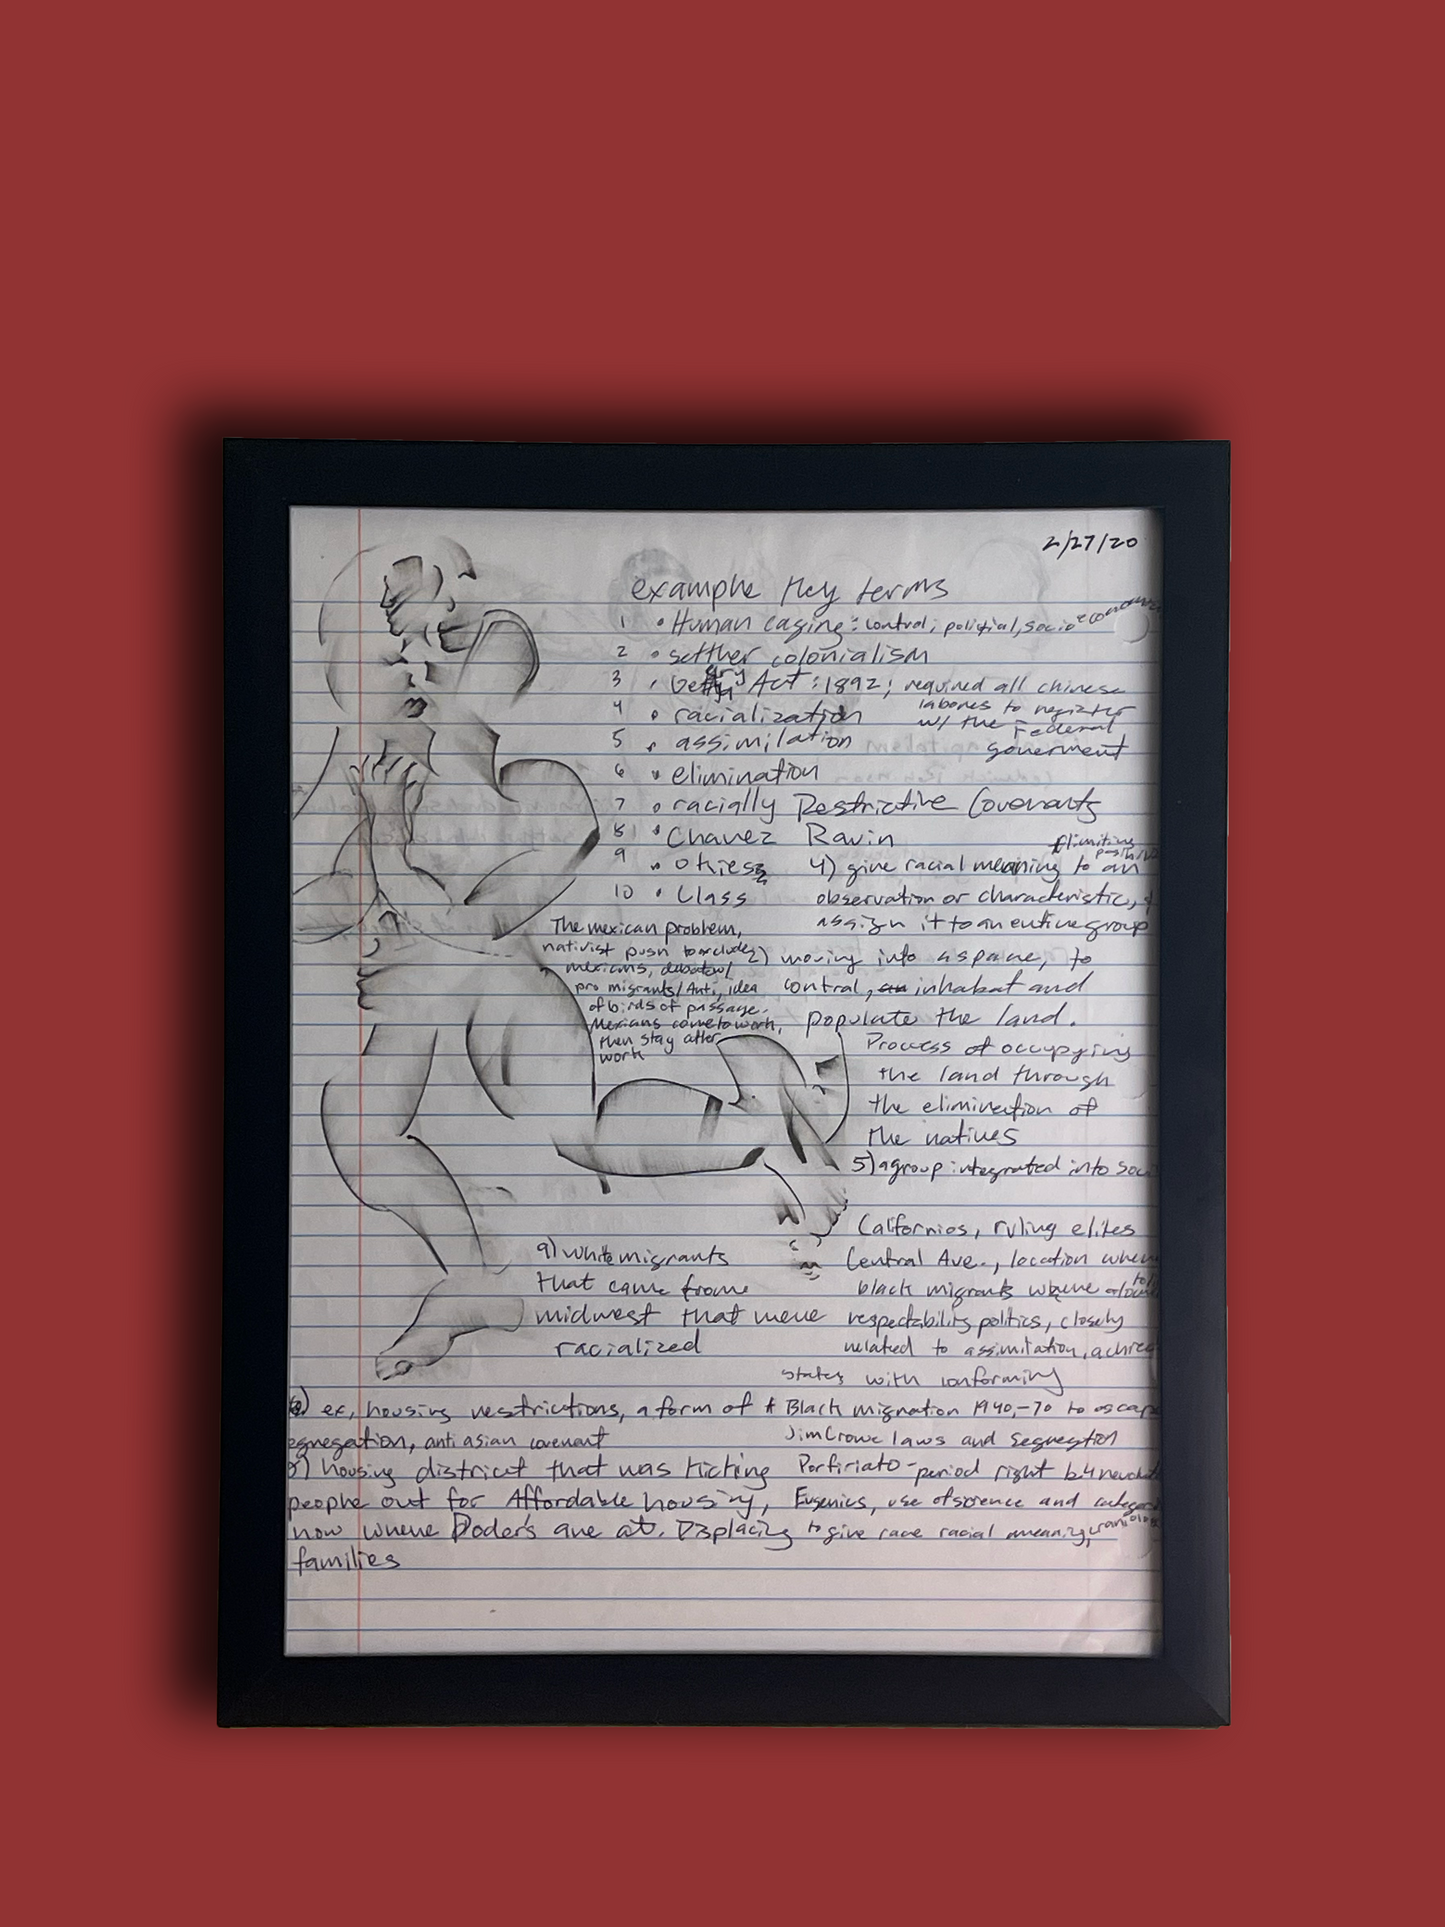 2/27/20
example key terms
1 • Human caging: control; political, socioeconomic
2 • settler colonialism
3 • Geary Act: 1892; required all chinese
labores to register
w/ the Federal
goverment
4 • racialization
5 • assimilation
6 • elimination
7 • racially Restrictive Covenants
8 • Chavez Ravin
9 • Okies
10 • Class
4) give racial meaning to an
observation or characteristic,
assign it to an entire group
limiting
The mexican problem,
nativist push to exclude
mexicans, debate w/
pro migrants/Anti, idea
of birds of passage.
Mexicans come to work,
then stay after
work
2) moving into a space, to
control, inhabat and
populate the land.
Process of occupying
the land through
the elimination of
the natives
5) a group integrated into soc
Californios, ruling elites
Central Ave., location where
black migrants where
respectability politics, closely
related to assimilation,
states with conforming
9) white migrants
that came from
midwest that were
racialized
ex, housing restrictions, a form of
segregation, anti asian covenant
housing district that was kicking
people out for Affordable housing,
now where Doder's are at. Displacing
families
Black migration 1940,-70 to escape
Jim Crowe laws and Segregation
Porfiriato - period right b4
Eugenics, use of science and
to give race racial meaning,